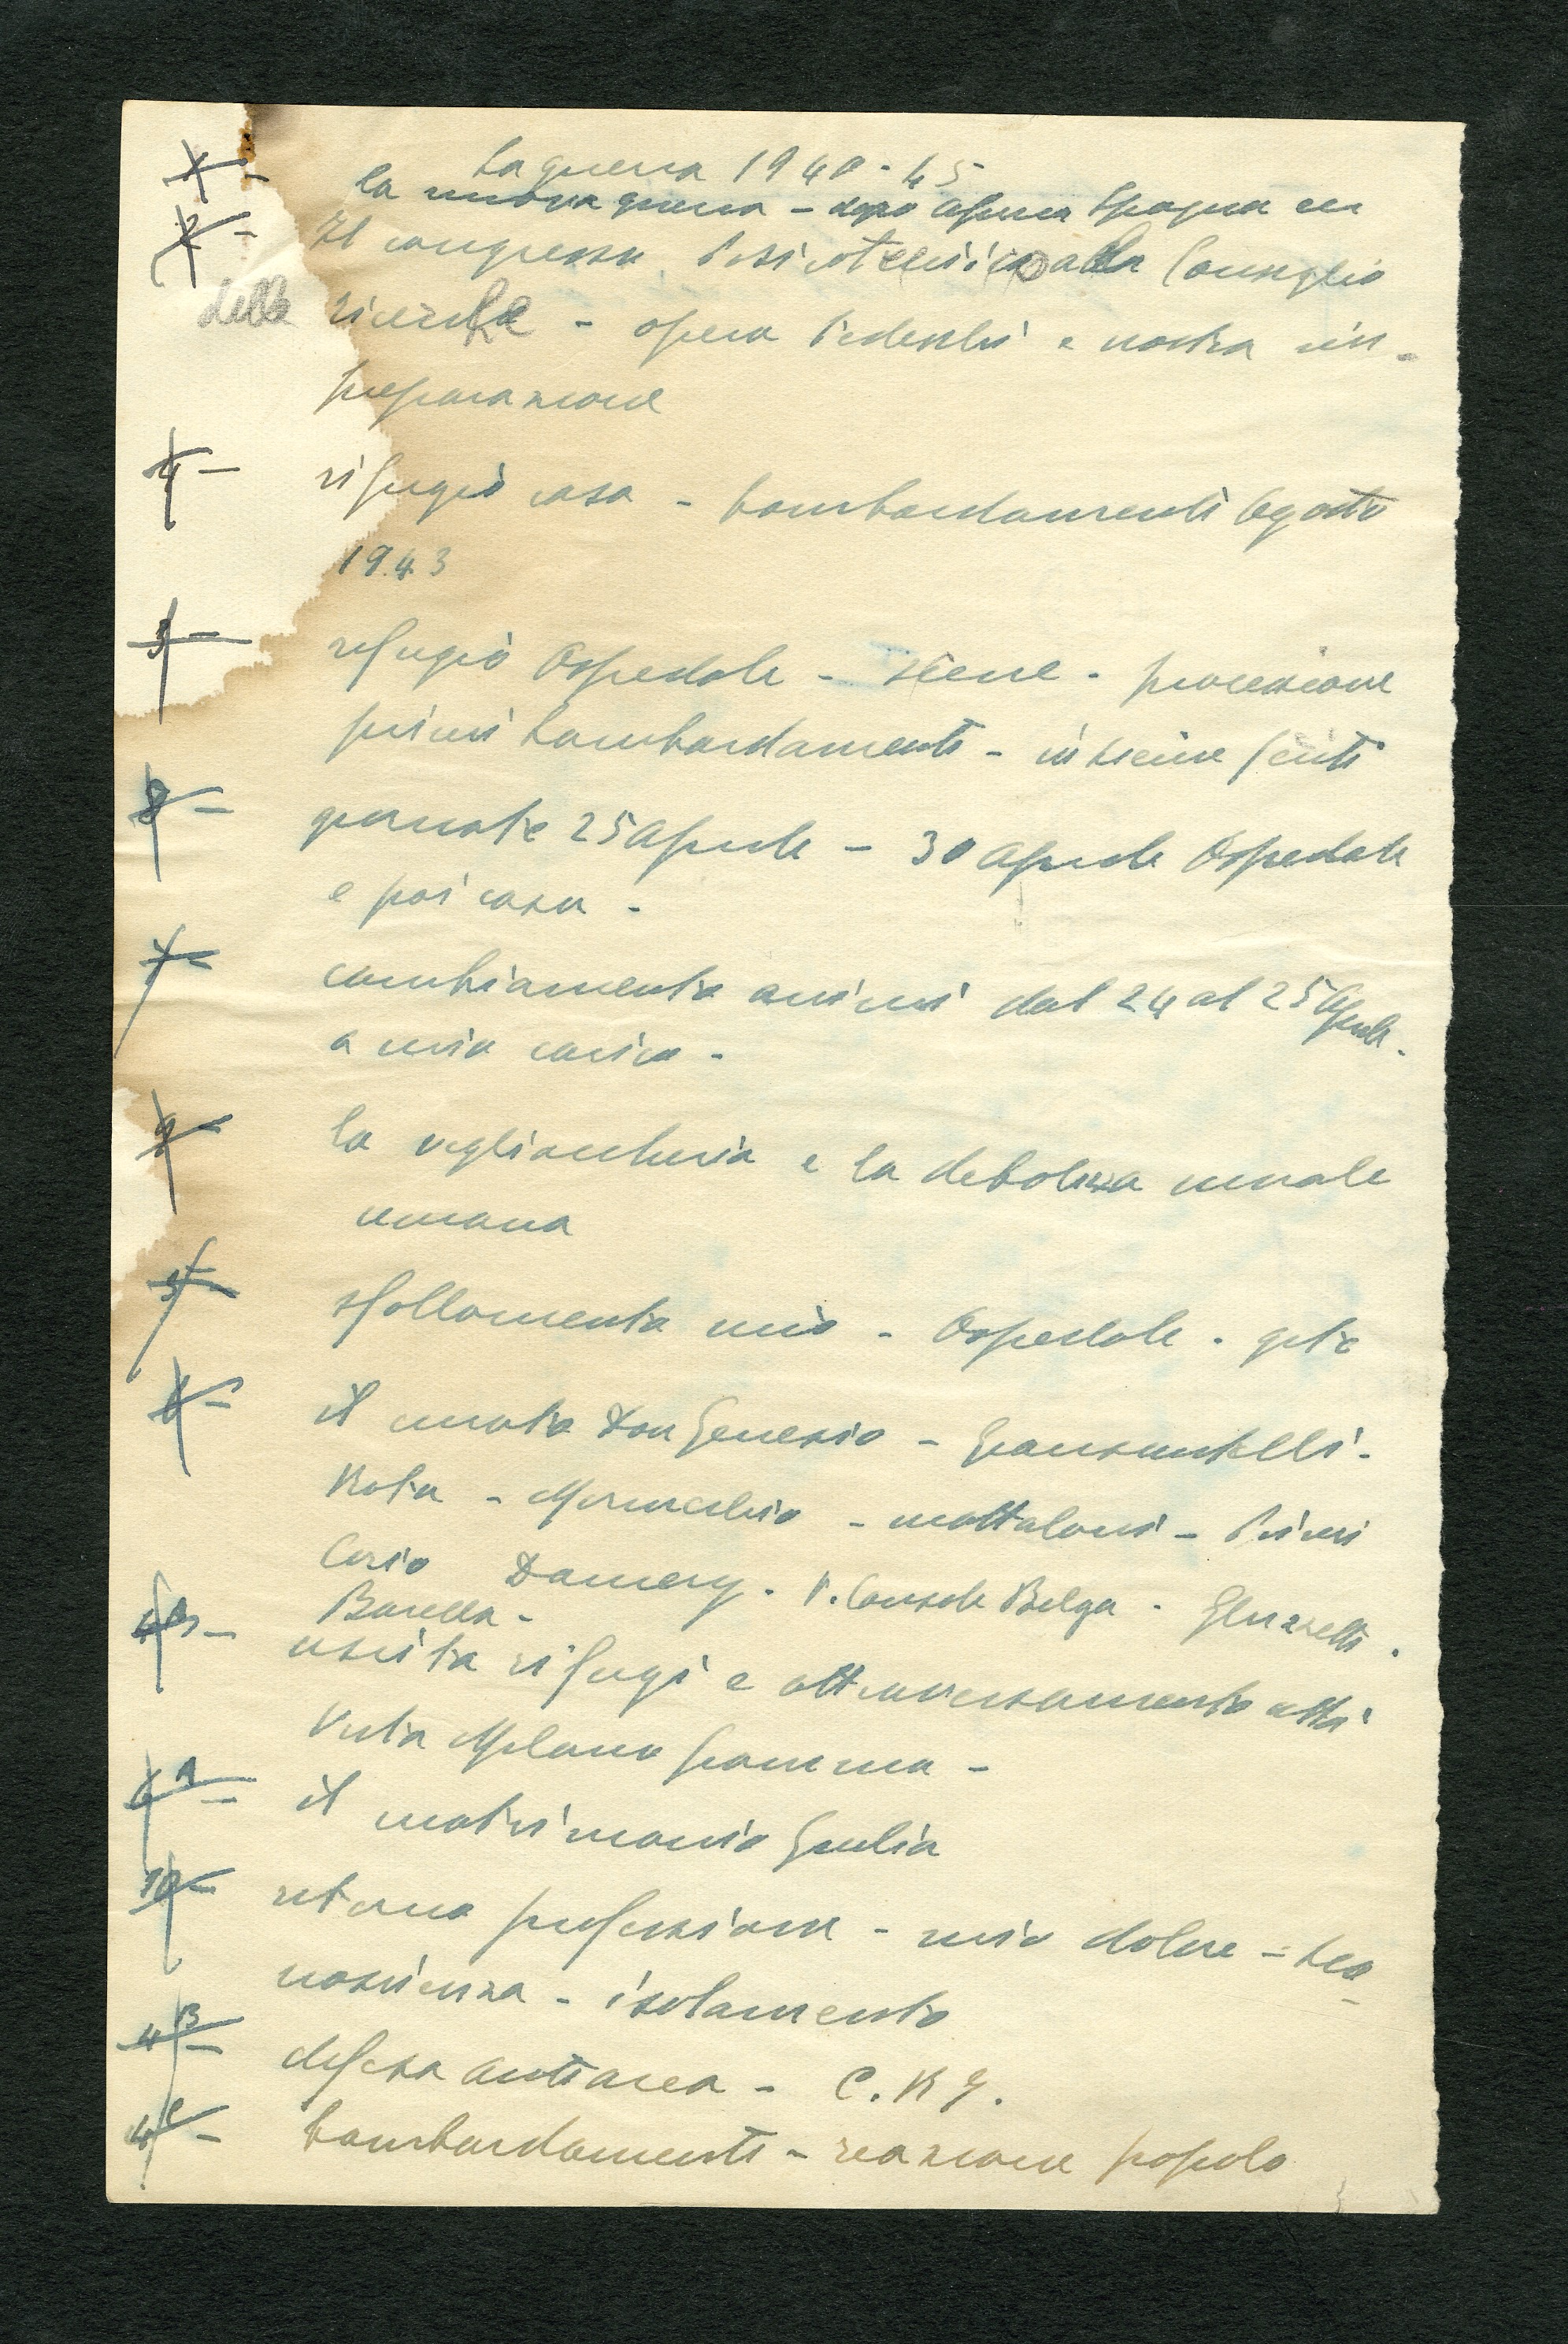 La guerra 1940-45
1 - la nuova guerra - dopo Spagna
2 - Il congresso Psicotecnica alla Consiglio
delle ricerche - opera Tedeschi e nostra im-
preparazione
4 - rifugio casa - bombardamenti Agosto
1943
3 - rifugio Ospedale - scene - processione
primi bombardamenti - feriti
8 - giornate 25 Aprile - 30 Aprile Ospedale
e poi casa -
7 - cambiamento animi dal 24 al 25 Aprile.
a mio carico -
9 - la vigliaccheria e la debolezza morale
umana
5 - sfollamento mio - Ospedale - gite
6 - il curato Don Genesio -
Rota - - Mattaloni -
Corio Damery. V. Console Belga -
Barella -
uscita rifugi e attraversamento città
Vista Milano fiamma -
6A - il matrimonio Giulia
10 - ritorno professione - mio dolore - rico-
noscenza - isolamento
4B - difesa antiaerea - C.R.I.
4C - bombardamenti - reazione popolo